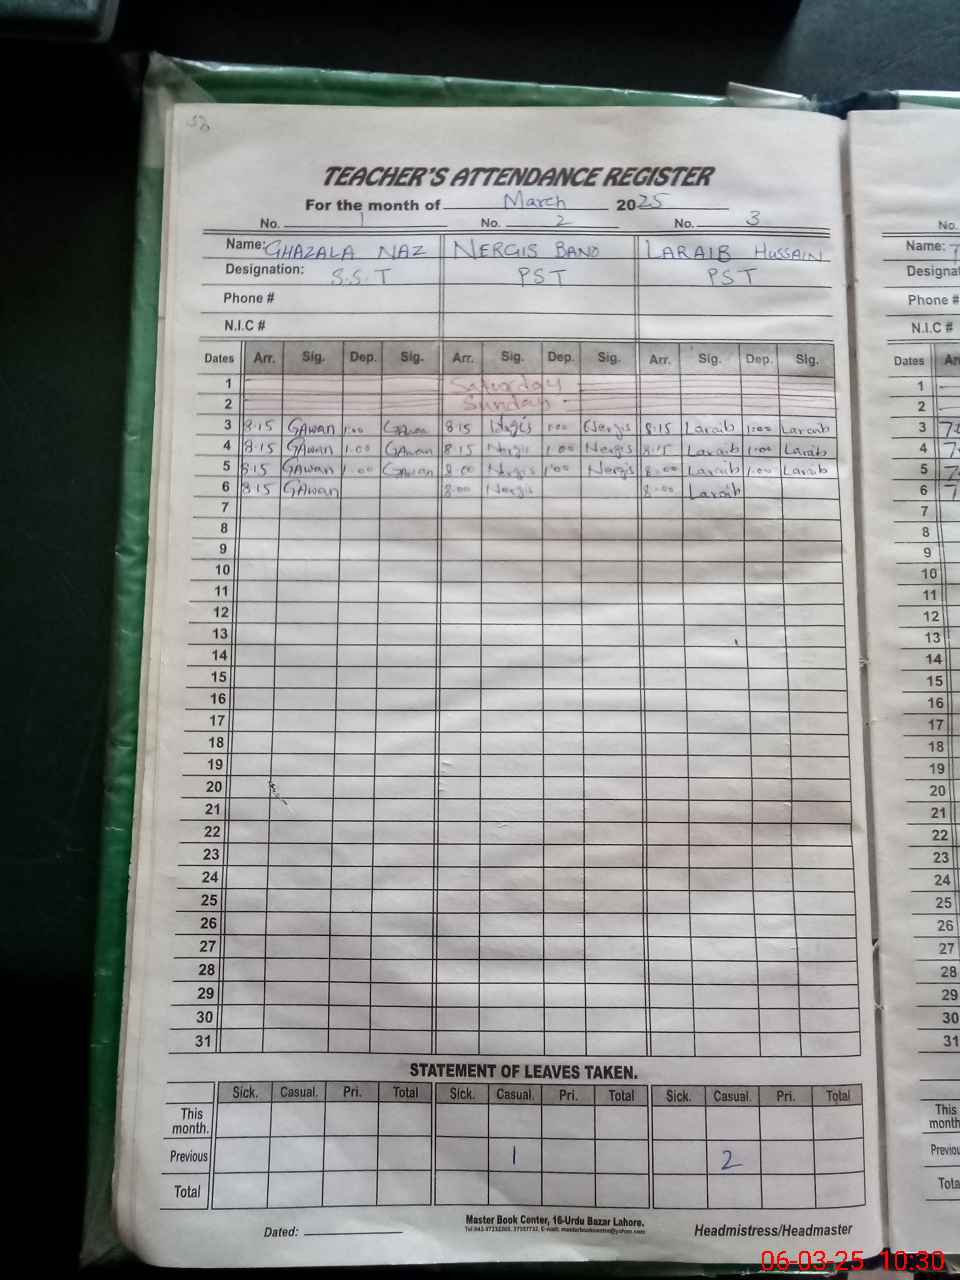 TEACHER'S ATTENDANCE REGISTER
For the month of March 2025
No. 1 No. 2 No. 3 No.
Name: GHAZALA NAZ NERGIS BANO LARAIB HUSSAIN Name:
Designation: S.S.T PST PST
Phone # Phone #
N.I.C # N.I.C #
Dates Arr. Sig. Dep. Sig. Arr. Sig. Dep. Sig. Arr. Sig. Dep. Sig. Dates
1 Saturday 1
2 Sunday 2
3 8:15 GAwan 1:00 GAwan 8:15 Nergis 1:00 Nergis 8:15 Laraib 1:00 Laraib 3
4 8:15 GAwan 1:00 GAwan 8:15 Nergis 1:00 Nergis 8:15 Laraib 1:00 Laraib 4
5 8:15 GAwan 1:00 GAwan 8:00 Nergis 1:00 Nergis 8:00 Laraib 1:00 Laraib 5
6 8:15 GAwan 8:00 Nergis 8:00 Laraib 6
7 7
8 8
9 9
10 10
11 11
12 12
13 13
14 14
15 15
16 16
17 17
18 18
19 19
20 20
21 21
22 22
23 23
24 24
25 25
26 26
27 27
28 28
29 29
30 30
31 31
STATEMENT OF LEAVES TAKEN.
Sick. Casual. Pri. Total Sick. Casual. Pri. Total Sick. Casual. Pri. Total
This month. This month.
Previous 1 2
Total
Master Book Center, 16-Urdu Bazar Lahore.
Dated: Headmistress/Headmaster
06-03-25 10:30